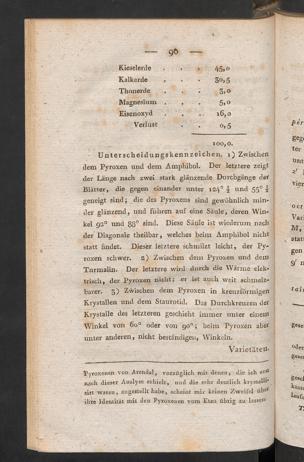 — 96 —
Kieselerde . . . 45,0
Kalkerde . . . 30,5
Thonerde . . . 3,0
Magnesium . . . 5,0
Eisenoxyd . . . 16,0
Verlust . . . 0,5
100,0.
Unterscheidungskennzeichen. 1) Zwischen
dem Pyroxen und dem Amphibol. Der letztere zeigt
der Länge nach zwei stark glänzende Durchgänge der
Blätter, die gegen einander unter 124° ½ und 55° ½
geneigt sind; die des Pyroxens sind gewöhnlich min-
der glänzend, und führen auf eine Säule, deren Win-
kel 92° und 88° sind. Diese Säule ist wiederum nach
der Diagonale theilbar, welches beim Amphibol nicht
statt findet. Dieser letztere schmilzt leicht, der Py-
roxen schwer. 2) Zwischen dem Pyroxen und dem
Turmalin. Der letztere wird durch die Wärme elek-
trisch, der Pyroxen nicht; er ist auch weit schmelz-
barer. 3) Zwischen dem Pyroxen in kreuzförmigen
Krystallen und dem Staurotid. Das Durchkreuzen der
Krystalle des letzteren geschieht immer unter einem
Winkel von 60° oder von 90°; beim Pyroxen aber
unter anderen, nicht beständigen, Winkeln.
Varietäten.
Pyroxenen von Arendal, vorzüglich mit denen, die ich erst
nach dieser Analyse erhielt, und die sehr deutlich krystalli-
sirt waren, angestellt habe, scheint mir keinen Zweifel über
ihre Identität mit den Pyroxenen vom Etna übrig zu lassen.